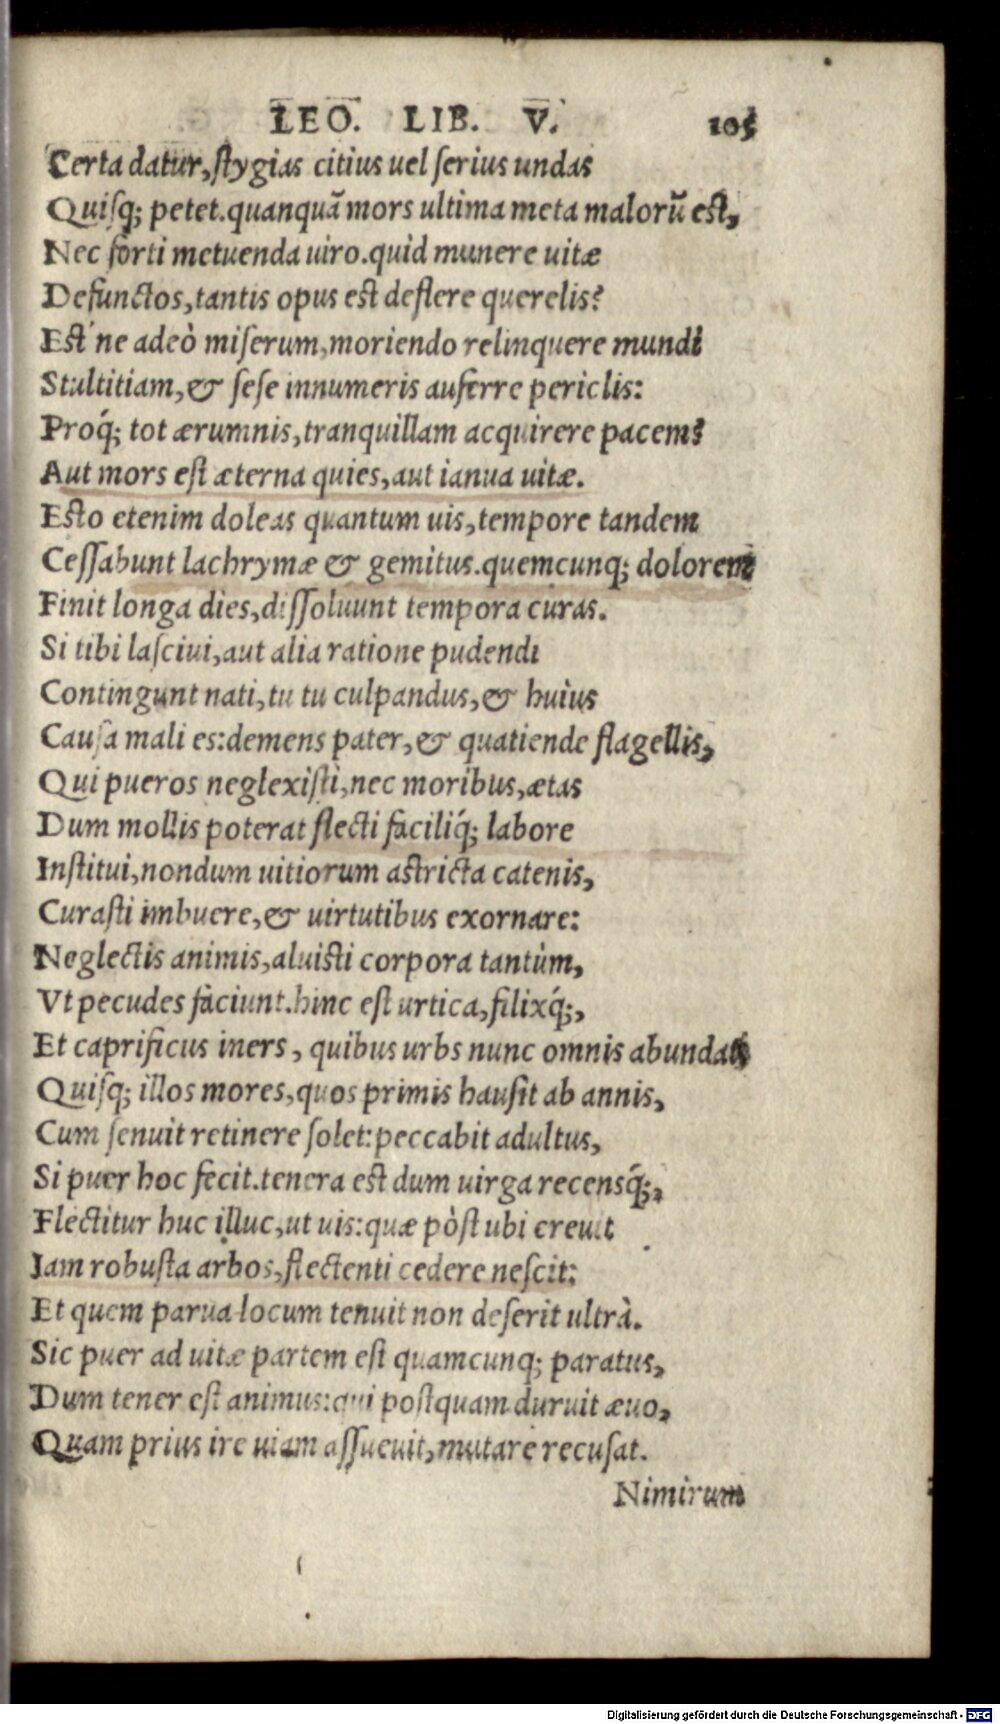 LEO. LIB. V. 105
Certa datur, stygias citius uel serius undas
Quisq; petet. quanquã mors ultima meta malorũ est,
Nec forti metuenda uiro. quid munere uitæ
Defunctos, tantis opus est deflere querelis?
Est' ne adeò miserum, moriendo relinquere mundi
Stultitiam, & sese innumeris auferre periclis:
Proq́; tot ærumnis, tranquillam acquirere pacem?
Aut mors est æterna quies, aut ianua uitæ.
Esto etenim doleas quantum uis, tempore tandem
Cessabunt lachrymæ & gemitus. quemcunq; dolorem
Finit longa dies, dissoluunt tempora curas.
Si tibi lasciui, aut alia ratione pudendi
Contingunt nati, tu tu culpandus, & huius
Causa mali es: demens pater, & quatiende flagellis,
Qui pueros neglexisti, nec moribus, ætas
Dum mollis poterat flecti faciliq́; labore
Institui, nondum uitiorum astricta catenis,
Curasti imbuere, & uirtutibus exornare:
Neglectis animis, aluisti corpora tantùm,
Vt pecudes faciunt. hinc est urtica, filixq́;,
Et caprificus iners, quibus urbs nunc omnis abundat
Quisq; illos mores, quos primis hausit ab annis,
Cum senuit retinere solet: peccabit adultus,
Si puer hoc fecit. tenera est dum uirga recensq́;,
Flectitur huc illuc, ut uis: quæ pòst ubi creuit
Iam robusta arbos, flectenti cedere nescit:
Et quem parua locum tenuit non deserit ultrà.
Sic puer ad uitæ partem est quamcunq; paratus,
Dum tener est animus: qui postquam duruit æuo,
Quam prius ire uiam assueuit, mutare recusat.
Nimirum
Digitalisierung gefördert durch die Deutsche Forschungsgemeinschaft - DFG